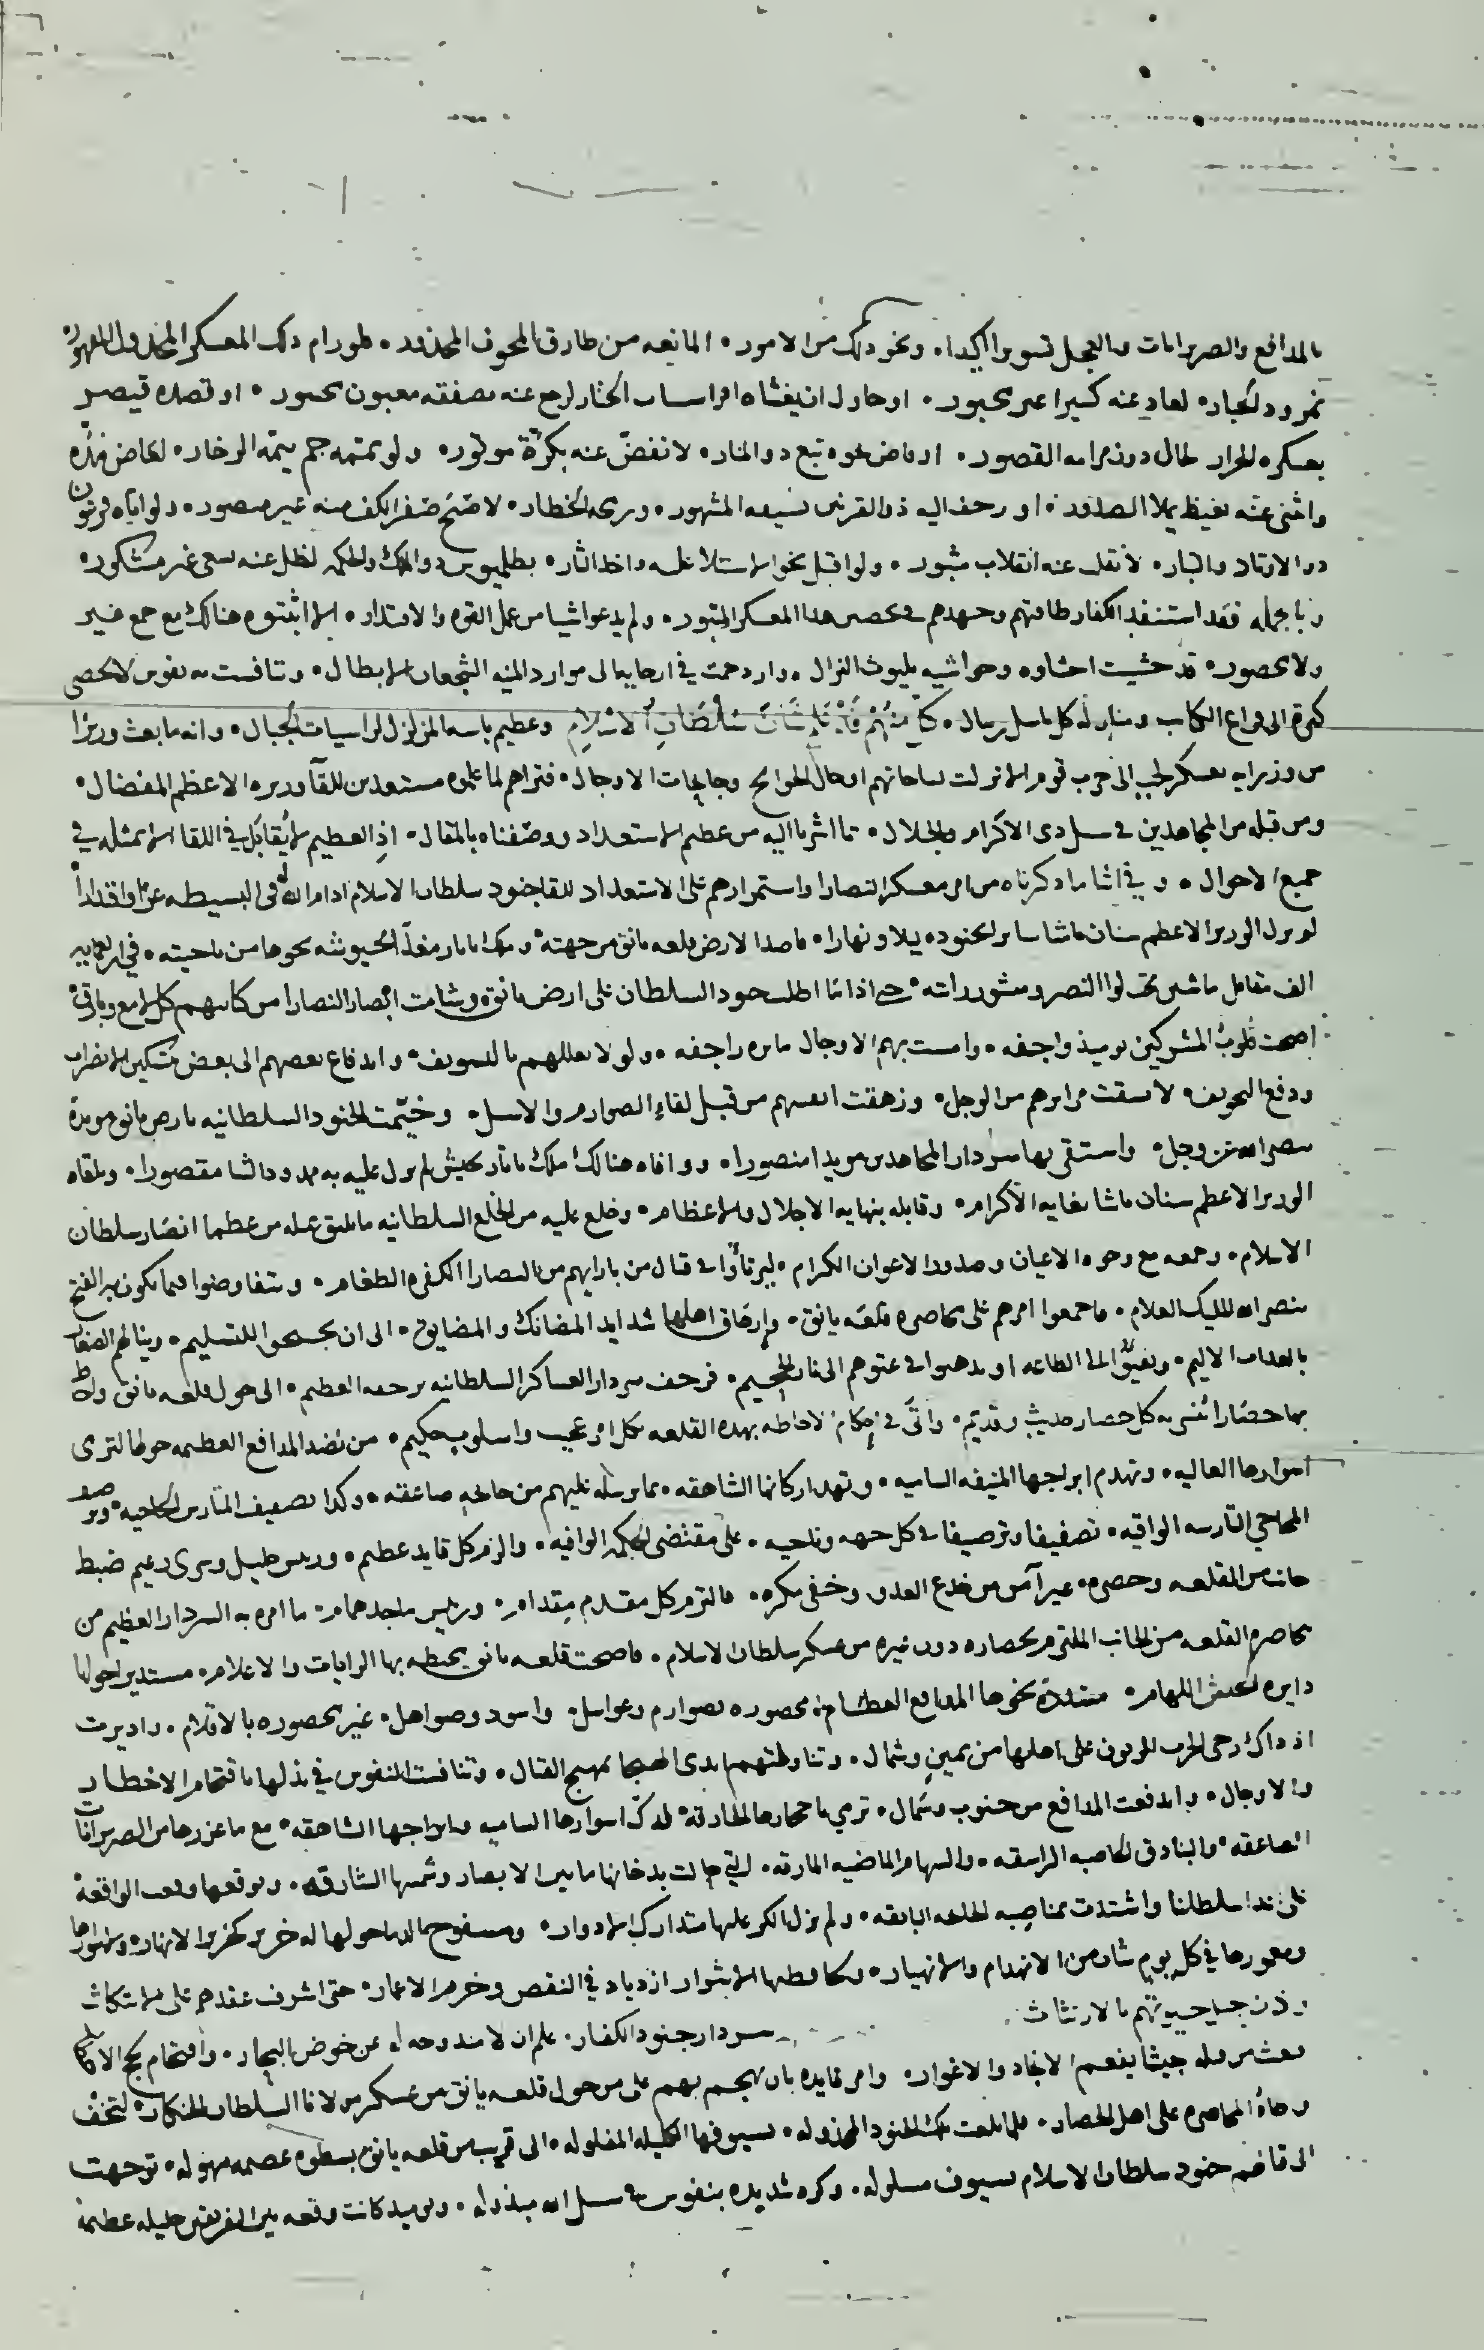 بالمدافع والضربزانات والعجل تسويرا اكيدا، ونحو ذلك من الامور، المانعه من طارق المخوف المحذور، فلو رام ذلك المعسكر المخذول المقهور
نمرود الجبار، لعاد عنه كسيرا غير محبور، او حاول ان يغشاه افراسياب الختار لرجع عنه بصفقه مغبون محسور، او قصده قيصر
بعسكره الجرار لحال دون مرامه القصور، او ناض نحوه تبع ذو المنار، لانفض عنه بكرة موتور، ولو يممه جم بيمه الزخار، لغاض
وانثنى عنه بغيظ يملا الصدور، او زحف اليه ذو القرنين بسيفه المشهور، ورمحه الخطار، لاصبح صفر الكف منه غير منصور، ولو اتاه فرعون
ذو الاوتاد والتبار، لانقلب عنه انقلاب مثبور، ولو اقبل نحوه للاستيلا عليه واخذ الثار، بطليموس ذو الملك والحكمه لظل عنه بسعي غير مشكور،
وبالجمله فقد استنفد الكفار طاقتهم وجهدهم في تحصين هذا المعسكر المتبور، ولم يدعوا شيا من عمل القوه والاقتدار، الا اثبتوه هنالك مع جمع غير
ولا محصور، قد حشيت احشاوه وحواشيه بليوث النزال، وازدحمت في ارجايه الى موارد المنيه الشجعان والابطال، وتنافست به نفوس لا تحصى
كثرة الى قراع الكتايب ومنازلة كل باسل ريبال، كل منهم قد علم شان سلطان الاسلام وعظيم باسه المزلزل لراسيات الجبال، وانه ما بعث وزيرا
من وزرايه بعسكر لجب الى حرب قوم الا نزلت بساحاتهم اوجال الجوايح وجايحات الاوجال، فتراهم لما علموه مستعدين للقآ وزيره الاعظم المفضال،
ومن قبله من المجاهدين في سبيل ذي الاكرام والجلال، بما اشرنا اليه من عظيم الاستعداد ووصفناه بالمقال، اذ العظيم لا يُقابَل في اللقا الا بمثله في
جميع الاحوال، وفي اثنا ما ذكرناه من امر معسكر النصارا واستمرارهم على الاستعداد للقا جنود سلطان الاسلام ادام الله له في البسيطه عزا واقتدارا
لم يزل الوزير الاعظم سنان باشا سايرا بجنوده ليلا ونهارا، قاصدا لارض قلعه يانق من جهته، وملك تاتار مغذّا لجيوشه نحوها من ناحيته، في اربعمايه
الف مقاتل ماشين تحت لوا النصر ومنشور رايته، حتى اذا ما اطلت جنود السلطان على ارض يانق وشامت ابصار النصارا من كتايبهم كل لامع وبارق
اصبحت قلوب المشركين يوميذ واجفه، وامست بهم الاوجال مايره راجفه، ولولا تعللهم بالتسويف، واندفاع بعضهم الى بعض بتسكين الاضطراب
ودفع التخويف، لانشقت مرايرهم من الوجل، وزهقت انفسهم من قبل لقاء الصوارم والاسل، وخيّمت الجنود السلطانيه بارض يانق مويدة
بنصر الله عز وجل، واستقر بها سردار المجاهدين مويدا منصورا، ووافاه هنالك ملك تاتار بجيش لم يزل عليه به ممدودا لا مقصورا، وتلقاه
الوزير الاعظم سنان باشا بغايه الاكرام، وقابله بنهايه الاجلال والاعظام، وخلع عليه من الخلع السلطانيه ما يليق بمثله من عظما انصار سلطان
الاسلام، وجمعه مع وجوه الاعيان وصدور الاعوان الكرام، ليرتاؤا في قتال من بازايهم من النصارا الكفره الطغام، ويتفاوضوا فيما يكون به الفتح
بنصر الله المليك العلام، فاجمعوا امرهم على محاصره قلعه يانق، وارهاق اهلها شدايد المضانك والمضايق، الى ان يجنحوا للتسليم، وينالهم الصغار
بالعذاب الاليم، ويفيؤا الى الطاعه او يذهبوا في عتوهم الى نار الجحيم، فزحف سردار العساكر السلطانيه بزحفه العظيم، الى حول قلعه يانق واحاط
بها حصارا انسى به كل حصار حديث وقديم، واتى في احكام الاحاطه بهذه القلعه بكل امر عجيب واسلوب حكيم، من نضد المدافع العظيمه حولها لترمي
اسوارها العاليه، وتهدم ابراجها المنيفه الساميه، وتهد اركانها الشاهقه، بما ترسله عليهم من جايحه صاعقه، وكذا تصفيف المتارس الحاميه، وترصيف
المحاجي التارسه الواقيه، تصفيفا وترصيفا في كل جهه وناحيه، على مقتضى الحكمه الوافيه، والزم كل قايد عظيم، وريس جليل وسري زعيم ضبط
جانب من القلعه وحصره، غير آمن من خدع العدو وخفي مكره، فالتزم كل مقدم مقدام، وريس ماجد همام، ما امره به السردار العظيم من
محاصره القلعه من الجانب الملتزم بحصاره دون غيره من عسكر سلطان الاسلام، فاصبحت قلعه يانق محيطه بها الرايات والاعلام، مستديرا حولها
دايره الجيش اللهام، مسدده نحوها المدافع العظام، محصوره بصوارم وعواسل، واسود وصواهل، غير محصوره بالاقلام، واديرت
اذ ذاك رحى الحرب الزبون على اهلها من يمين وشمال، وتناولتهم ايدي الهيجا بمهيج القتال، وتنافست النفوس في بذلها باقتحام الاخطار
والاوجال، واندفعت المدافع من جنوب وشمال، ترمي باحجارها الطارقه، لدك اسوارها الساميه وابراجها الشاهقه، مع ما عززها من الضربزانات
الصاعقه، والبنادق الحاصبه الراشقه، والسهام الماضيه المارقه، التي حالت بدخانها ما بين الابصار وشمسها الشارقه، وبوقعها وقعت الواقعة
على اعدا سلطاننا واشتدت بمناصبيه الجايحه البايقه، ولم يزل الكر عليها متدارك الادوار، ومسفوح الدما حولها له خرير كخرير الانهار، وسورها
ومعمورها في كل يوم شان من الانهدام والانهيار، وبمحافظيها الاشرار ازدياد في النقص وخرم الاعمار، حتى اشرف عقدهم على الانتكاث
واذن حبل حيوتهم بالارتثاث.
سردار جنود الكفار، علم ان لا مندوحه له عن خوض البحار، واقتحام لجج الاخطار
بعث من قبله جيشا يفعم الانجاد والاغوار، وامر قايده بان يهجم بهم على من حول قلعه يانق من عسكر مولانا السلطان الخنكار، لتخف
وطاة المحاصره على اهل الحصار، فلما بلغت تلك الجنود المخذوله، بسيوفها الكليله المفلوله، الى قريب من قلعه يانق بسطوه عصيبه مهوله، توجهت
الى قتالهم جنود سلطان الاسلام بسيوف مسلوله، وكره شديده بنفوس في سبيل الله مبذوله، ويوميذ كانت وقعه بين الفريقين جليله عظيمة